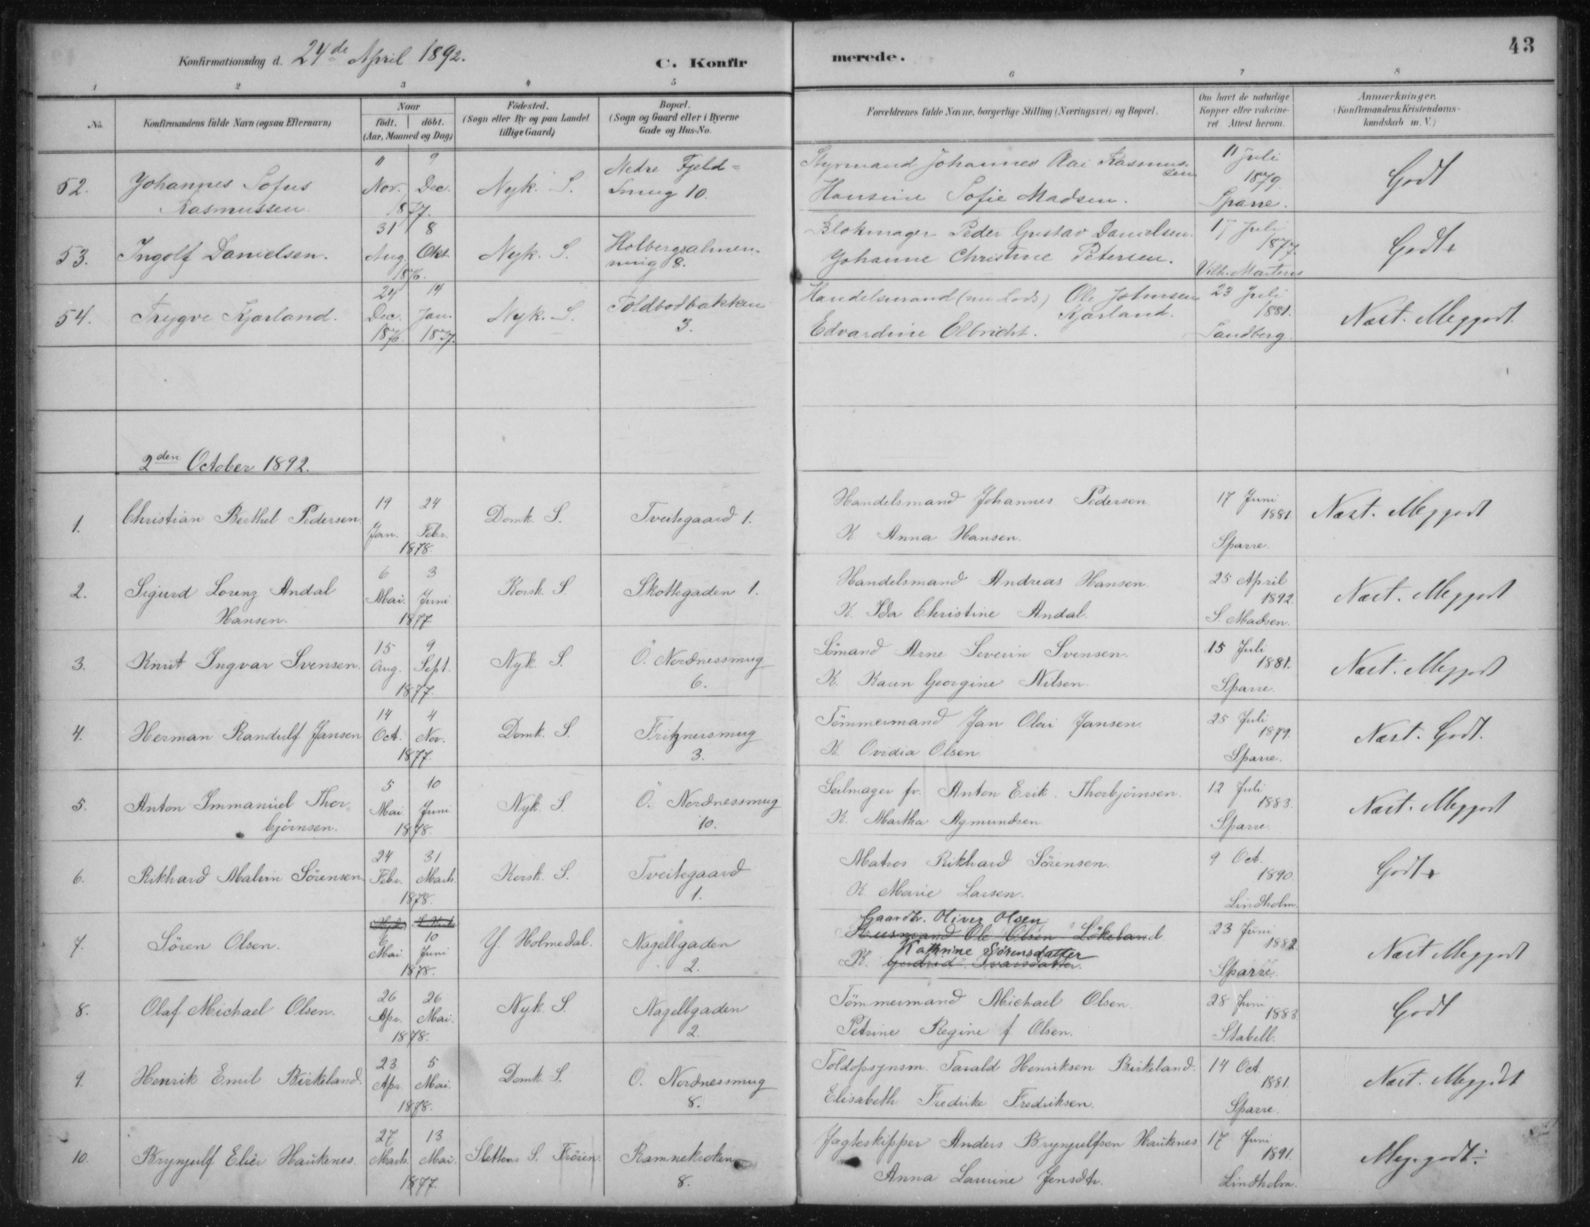 Konfirmationsdag d. 24de April 1892.
C. Konfirmerede.
43
1 2 3 4 5 6 7 8
No.
Konfirmandens fulde Navn (ogsaa Efternavn)
Naar
født. døbt.
(Aar, Maaned og Dag)
Fødested.
(Sogn eller By og paa Landet
tillige Gaard)
Bopæl.
(Sogn og Gaard eller i Byerne
Gade og Hus-No.
Forældrenes fulde Navne, borgerlige Stilling (Næringsvei) og Bopæl.
Om havt de naturlige
Kopper eller vakcine-
ret. Attest herom.
Anmærkninger.
(Konfirmandens Kristendoms-
kundskab m. V.)
52. Johannes Sofus
Rasmussen
11 Nov. 9 Dec.
1877.
Nyk. S.
Nedre Fjeld=
Smug 10.
Styrmand Johannes Rasmussen
Hansine Sofie Madsen.
11 Juli
1879
Sparre.
Godt
53. Ingolf Danielsen.
31 Aug. 8 Okt.
1876.
Nyk. S.
Holbergsalmenning 8.
Blokmager Peder Gustav Danielsen
Johanne Christine Petersen.
17 Juli
1877
Vilh. Martens
Godt
54. Trygve Kjørland.
24 Dec. 14 Jan.
1876. 1877.
Nyk. S.
Toldbodbakken
3.
Handelsmand (nu Lods) Ole Johnsen
Kjørland.
Edvardine Olbricht.
23 Juli
1881.
Sandberg.
Næst. Meggodt
2den October 1892.
1. Christian Berthel Pedersen
19 Jan. 24 Febr.
1878
Domk. S.
Tveitegaard 1.
Handelsmand Johannes Pedersen
K. Anna Hansen.
17 Juni
1881
Sparre.
Næst. Meggodt
2. Sigurd Lorenz Andal
Hansen.
6 Mai. 3 Juni
1877
Korsk. S.
Skottegaden 1.
Handelsmand Andreas Hansen
K. Ida Christine Andal.
25 April
1892
S. Madsen.
Næst. Meggodt
3. Knut Ingvar Svensen.
15 Aug. 9 Sept.
1877
Nyk. S.
Ö. Nordnessmug
6.
Sömand Arne Severin Svensen.
K. Karen Georgine Nilsen
15 Juli
1881.
Sparre.
Næst. Meggodt
4. Herman Randulf Jansen
14 Oct. 4 Nov.
1877
Domk. S.
Fritznersmug
3.
Tömmermand Jan Olai Jansen
K. Ovidia Olsen
25 Juli
1879.
Sparre.
Næst. Godt.
5. Anton Immanuel Thor-
björnsen.
5 Mai 10 Juni
1878
Nyk. S
Ö. Nordnessmug
10.
Seilmager fr. Anton Erik Thorbjörnsen
K. Martha Agmundsen
12 Juli
1883.
Sparre.
Næst. Meggodt
6. Rikhard Malvin Sörensen
24 Febr. 31 Marts
1878
Korsk. S.
Tveitegaard
1.
Matros Rikhard Sörensen.
K. Marie Larsen.
9 Oct.
1890.
Lindholm.
Godt
7. Sören Olsen.
9 Mai 10 Juni
1878.
Y. Holmedal.
Nagellgaden
2.
Gaardbr. Oliver Olsen
Husmand Ole Olsen Lökeland
K. Kathrine Sörensdatter
23 Juni
1882
Sparre.
Næst Meggodt
8. Olaf Michael Olsen.
26 Apr. 26 Mai.
1878.
Nyk. S.
Nagellgaden
2
Tömmermand Michael Olsen
Petrine Regine f. Olsen.
28 Juni
1883
Stabell.
Godt
9. Henrik Emil Birkeland.
23 Apr. 5 Mai.
1878.
Domk. S.
Ö. Nordnessmug
8.
Toldopsynsm. Tarald Henriksen Birkeland.
Elisabeth Fredrike Fredriksen.
14 Oct
1881.
Sparre.
Næst. Meggodt
10. Brynjulf Elier Haukenes.
27 Marts. 13 Mai.
1877.
Slettens S. Frören.
Ramnekroken
8.
Jagteskipper Anders Brynjulfsen Haukenes
Anna Laurine Jensdtr.
17 Juni
1891.
Lindholm.
Meg. godt.